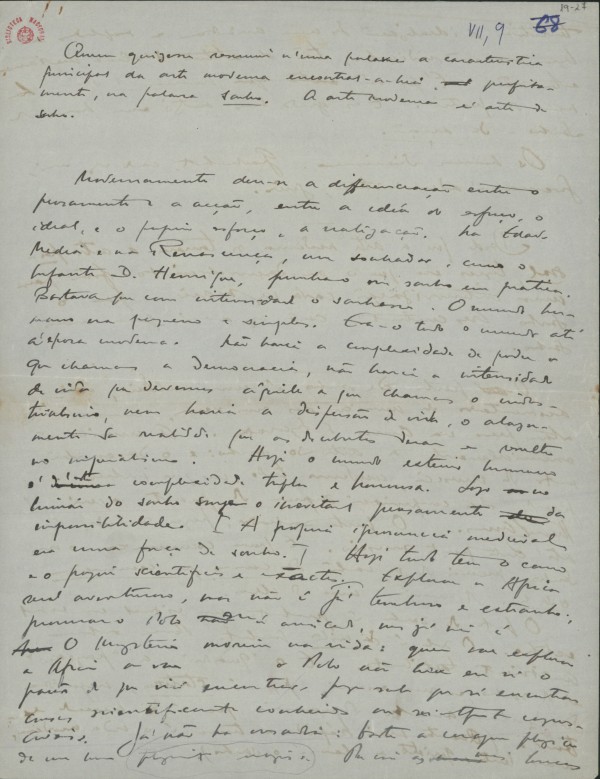 19-27
VII, 9 68
BIBLIOTECA NACIONAL
Quem quizesse resumir n'uma palavra a caracteristica
principal da arte moderna encontral-a-hia perfeita-
mente, na palavra sonho. A arte moderna é arte de
sonho.
Modernamente deu-se a differenciação entre o
pensamento e a acção, entre a idéa do esforço, o
ideal, e o proprio esforço, e a realização. Na Edade
Media e na Renascença, um sonhador, como o
Infante D. Henrique, punha o seu sonho em pratica.
Bastava que com intensidade o sonhasse. O mundo hu-
mano era pequeno e simples. Era-o todo o mundo até
á epoca moderna. Não havia a complexidade de poder a
que chamamos a democracia, não havia a intensidade
de vida que devemos áquillo a que chamamos o indus-
trialismo, nem havia a dispersão da vida, o alarga-
mento da realidade que as descobertas deram e resulta
no imperialismo. Hoje o mundo exterior humano
é d'esta complexidade tripla e horrorosa. Logo no
limiar do sonho surge o inevitavel pensamento da
impossibilidade. [A propria ignorancia medieval
era uma força de sonho.] Hoje tudo tem o como
e o porquê scientifico e exacto. Explorar a Africa
será aventuroso, mas não é já tenebroso e estranho;
procurar o Polo é arriscado, mas já não é
O Mysterio morreu na vida: quem vae explorar
a Africa ou vae o Polo não leva em si o
pavor do que virá encontrar, porque sabe que só encontrará
cousas scientificamente conhecidas ou scientificamente cognos-
civeis. Já não ha ousadia: basta a coragem physica
de um bom